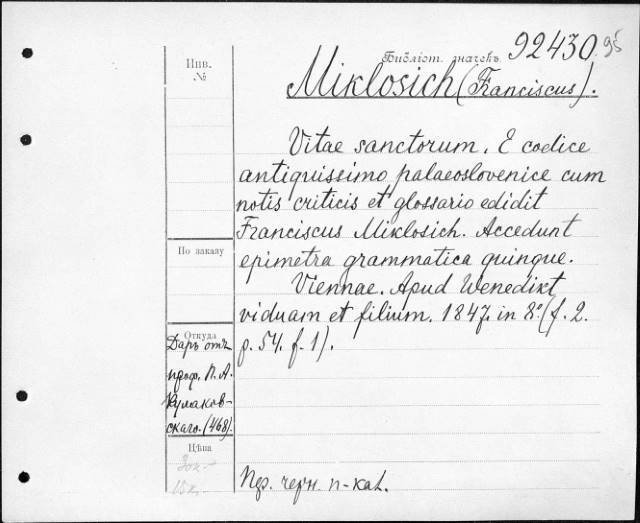 Инв. №
Библіот. значекъ 92430 95
Miklosich (Franciscus).
Vitae sanctorum. E codice
antiquissimo palaeoslovenice cum
notis criticis et glossario edidit
Franciscus Miklosich. Accedunt
epimetra grammatica quinque.
Viennae. Apud Wenedikt
viduam et filium. 1847. in 8.º (f. 2.
p. 54. f. 1).
По заказу
Откуда
Даръ отъ
проф. П. А.
Кулаков-
скаго. (468).
Цѣна
30к.
15к.